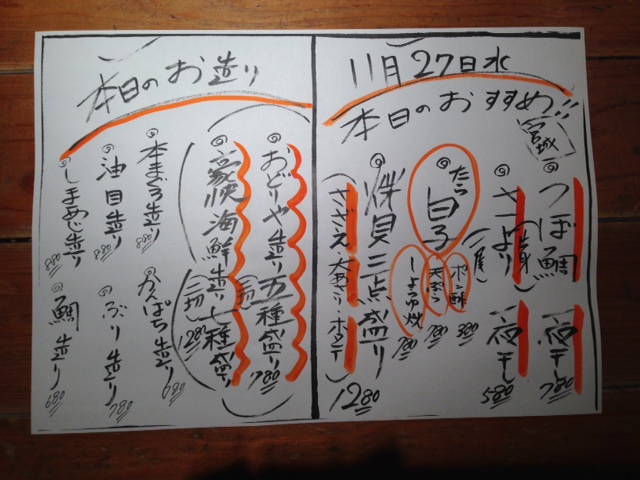 11月27日水
本日のおすすめ!!
宮城
つぼ鯛一夜干 780
さより一夜干 580
たら白子
ポン酢 380
天ぷら 780
しょう油炊 780
貝三点盛り 1280
(さざえ・大あさり・ホタテ)
本日のお造り
おどりや造り五種盛り 1780
海鮮造り七種盛
本まぐろ造り 880
かんぱち造り 680
油目造り 880
ぶり造り 780
しまあじ造り 880
鯛造り 680